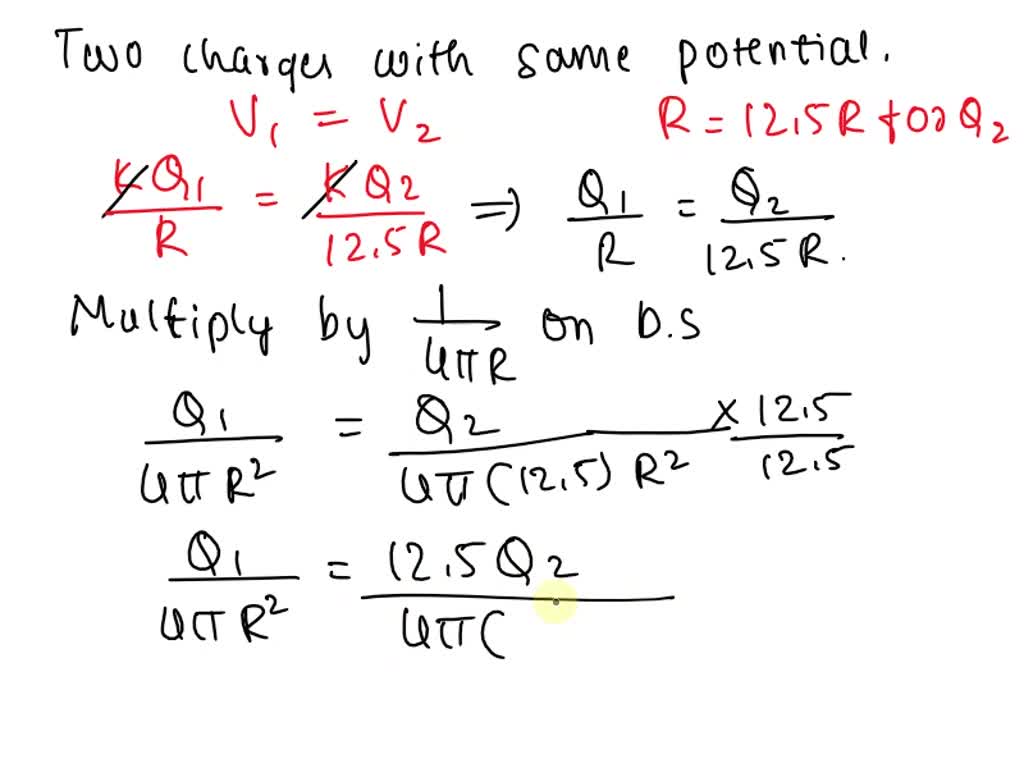 Two charges with same potential.
V₁ = V₂ R = 12.5R for Q₂
KQ₁/R = KQ₂/12.5R ⇒ Q₁/R = Q₂/12.5R.
Multiply by 1/4πR on D.S
Q₁/4πR² = Q₂/4π(12.5)R² × 12.5/12.5
Q₁/4πR² = 12.5Q₂/4π(